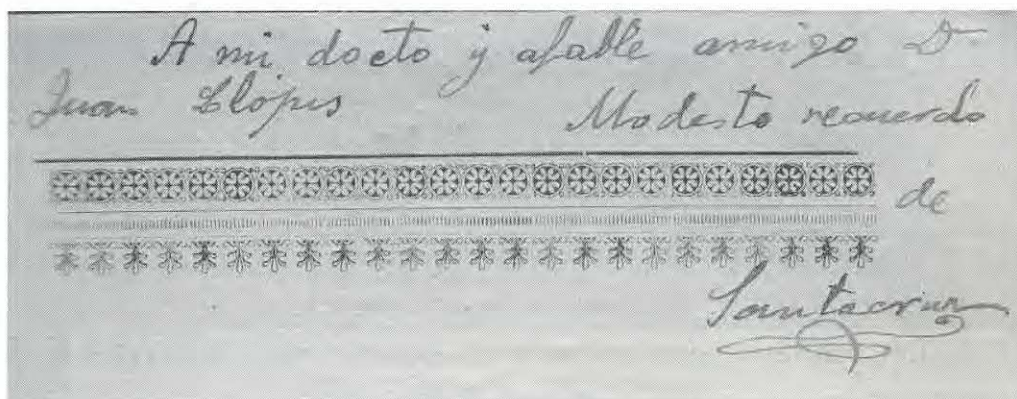 A mi docto y afable amigo Dn
Juan Llópis Modesto recuerdo
de
Santacruz